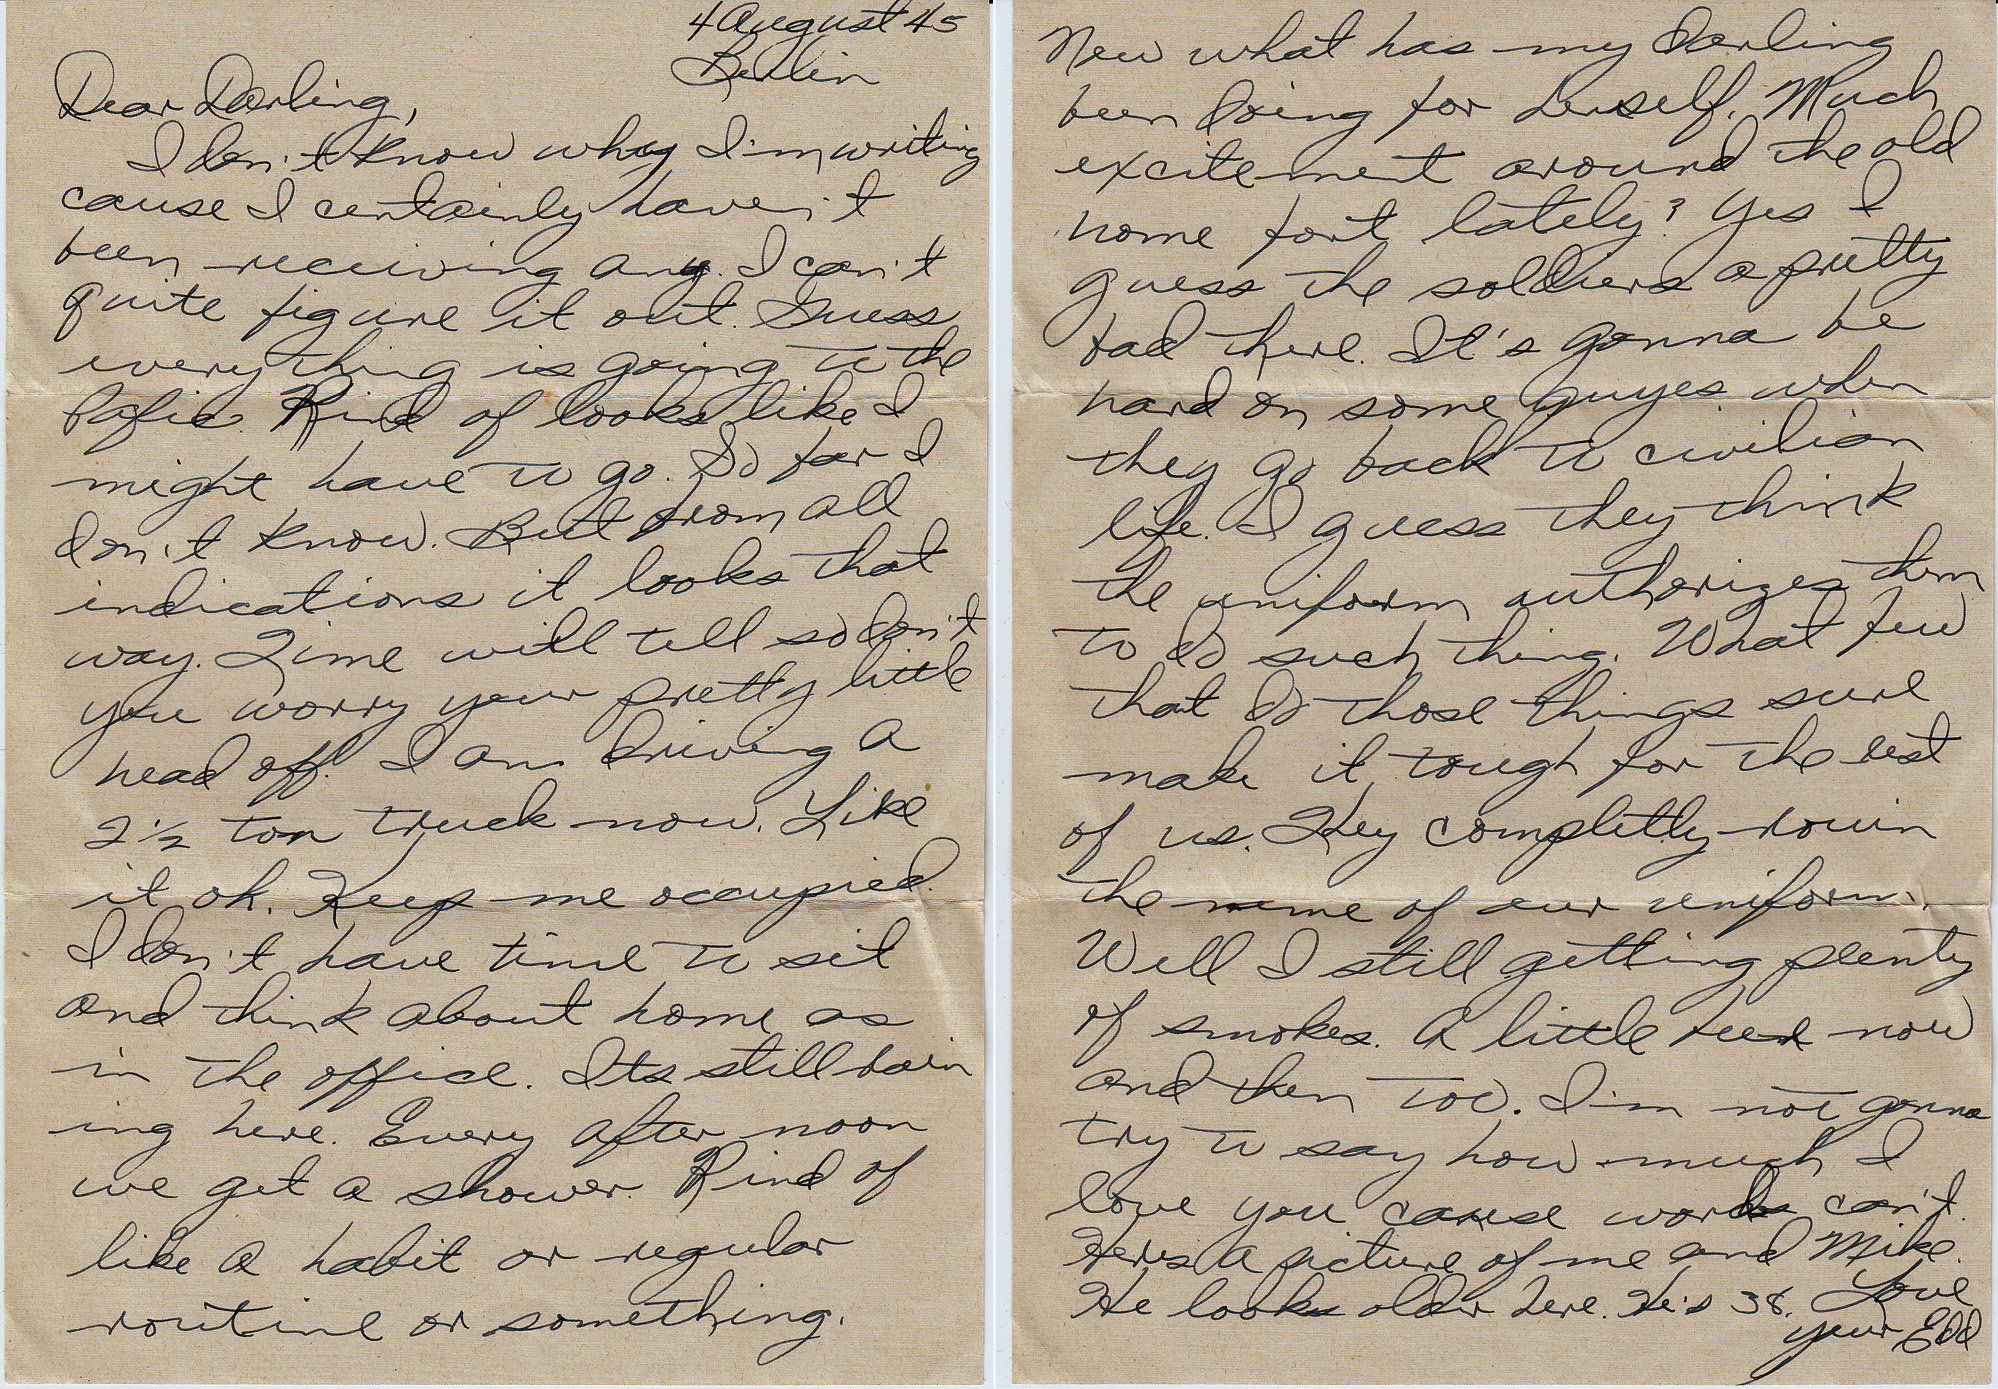 4 August 45
Berlin
Dear Darling,
I don't know why I'm writing
cause I certainly haven't
been receiving any. I can't
quite figure it out. Guess
everything is going to the
Pafic. Kind of looks like I
might have to go. So far I
don't know. But from all
indications it looks that
way. Time will tell so don't
you worry your pretty little
head off. I am driving a
2 1/2 ton truck now. Like
it ok. Keep me occupied.
I don't have time to sit
and think about home as
in the office. Its still rain
ing here. Every after noon
we get a shower. Kind of
like a habit or regular
routine or something.
Now what has my darling
been doing for herself. Much
excitement around the old
home fort lately? Yes I
guess the soldiers a pretty
bad there. It's gonna be
hard on some guyes when
they go back to civilian
life. I guess they think
the uniform authorizes them
to do such thing. What few
that do those things sure
make it tough for the rest
of us. They completly rouin
the name of our uniform.
Well I still getting plenty
of smokes. A little beer now
and then too. I'm not gonna
try to say how much I
love you cause words can't.
Heres a picture of me and Mike.
He looks older here. He's 38. Love
your Edd